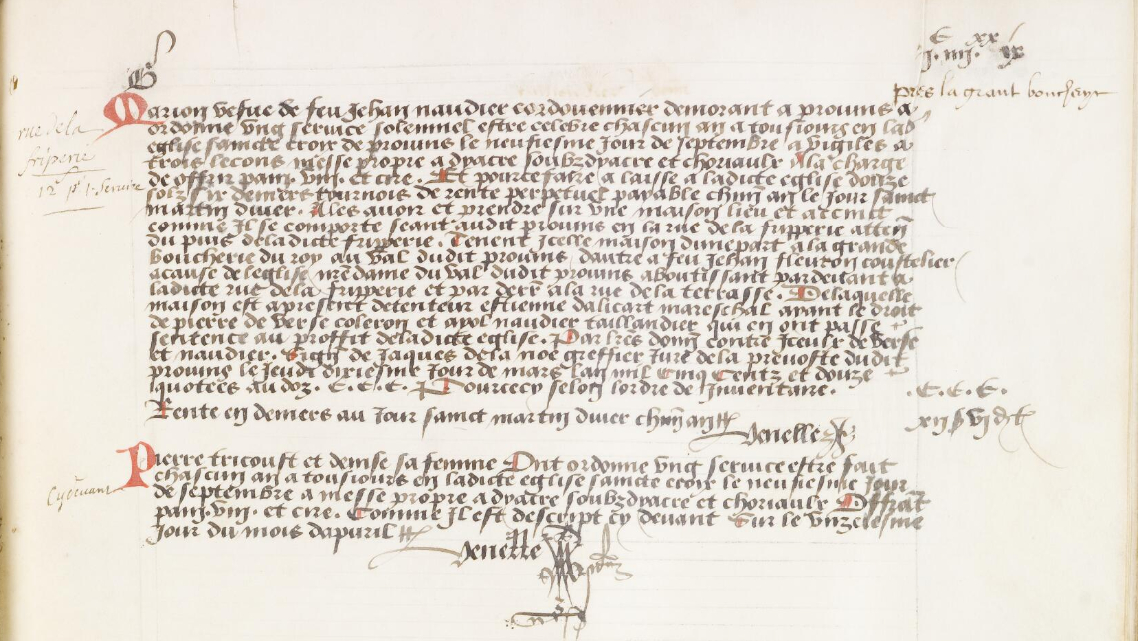 G
près la grant boucherye
rue de la
friperie
12 s. p. 1. Service
Marion vefue de feu Jehan naudier cordouennier demorant a prouuins a
ordonne vng seruice solemnel estre celebre chascun an a tousiours en lad
eglise saincte croix de prouuins le neufiesme Jour de septembre a vigiles a
trois lecons messe propre a dyacre soubzdyacre et choriaulx A la charge
de offrir pain. vin. et cire. Et pource faire a laisse a ladicte eglise douze
solz six deniers tournois de rente perpetuel payable chun an le Jour sainct
martin diuer. A les auoir et prendre sur vne maison lieu et
comme Il se comporte seant audit prouuins en la rue de la fripperie
du puis deladicte fripperie. Tenent Icelle maison dune part a la grande
boucherie du roy au val dudit prouuins dautre a feu Jehan fleuron coustelier
acause de leglise nre dame du val dudit prouuins aboutissant par deuant a
ladicte rue dela fripperie et par derr ala rue de la terrasse. Delaquelle
maison est apresent detenteur estienne dalicart mareschal ayant le droit
de pierre de verse coleron et ayol naudier taillandier qui en ont passe
sentence au proffit deladicte eglise. Par lres donn contre Iceulx de verse
et naudier. Sign de Jaques dela noe greffier Jure de la preuoste dudit
prouuins le Jeudi dixiesme Jour de mars lan mil Cinq Centz et douze
quotees au doz. E. E. E. Pourcecy selon lordre de Inuentaire.
.E.E.E.
Rente en deniers au Jour sainct martin diuer chun an
xii s vi d t
Jenelle
Cy deuant
Pierre tricoust et denise sa femme Ont ordonne vng seruice estre fait
chascun an a tousiours en ladicte eglise saincte croix le neufiesme Jour
de septembre a messe propre a dyacre soubzdyacre et choriaulx Offrat
pain. vin. et cire. Comme Il est descript cy deuant Sur le vnzeiesme
Jour du mois dapuril
Jenelle